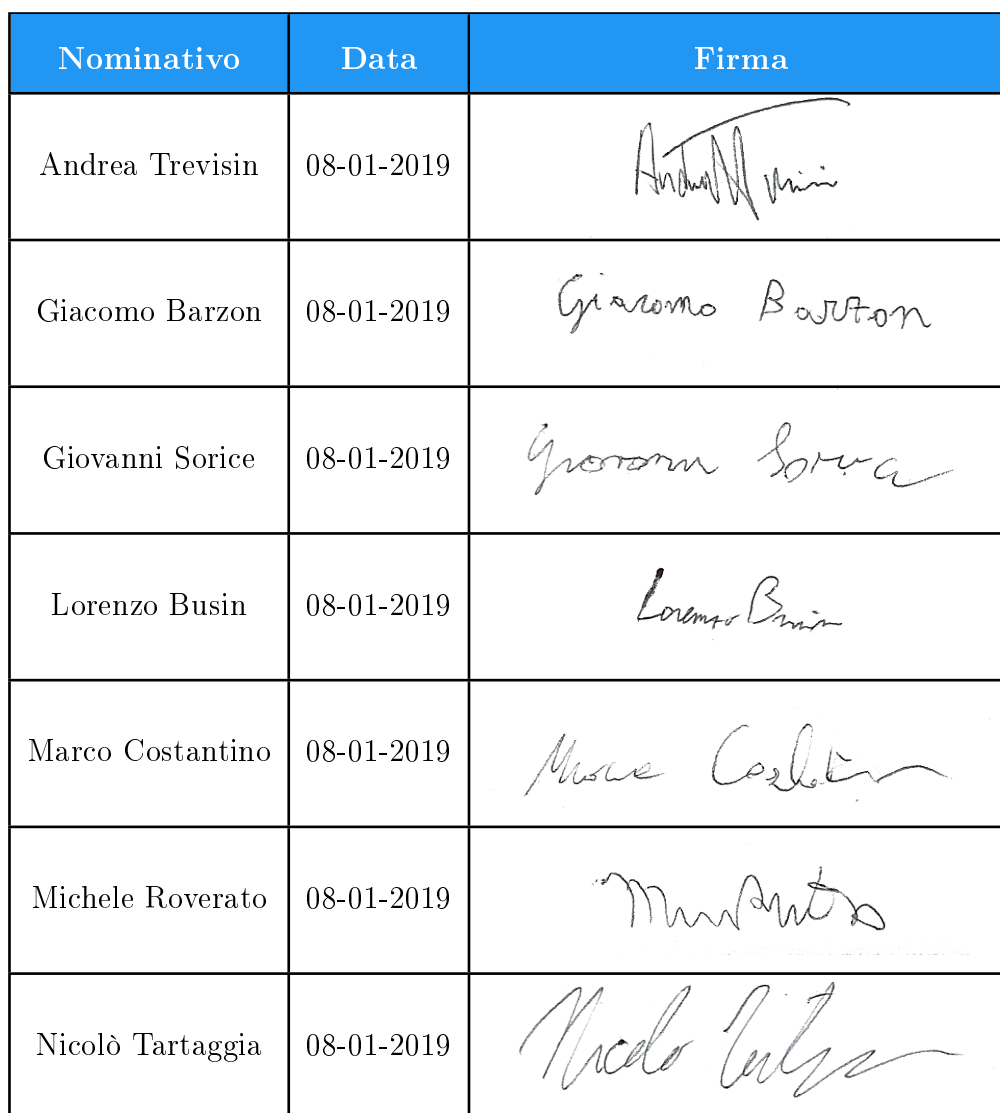 Nominativo Data Firma
Andrea Trevisin 08-01-2019
Giacomo Barzon 08-01-2019 Giacomo Barzon
Giovanni Sorice 08-01-2019 Giovanni Sorice
Lorenzo Busin 08-01-2019 Lorenzo Busin
Marco Costantino 08-01-2019 Marco
Michele Roverato 08-01-2019
Nicolò Tartaggia 08-01-2019 Nicolò